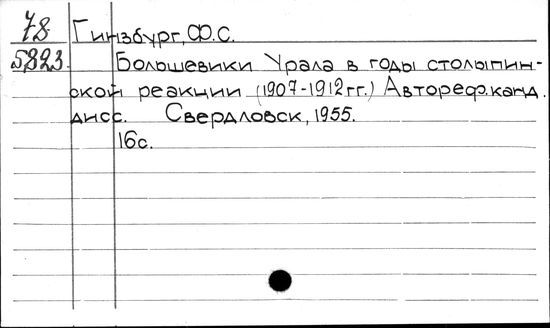 78 Гинзбург, Ф.С.
5823. Большевики Урала в годы столыпин-
ской реакции (1907-1912гг.) Автореф.канд.
дисс. Свердловск, 1955.
16с.